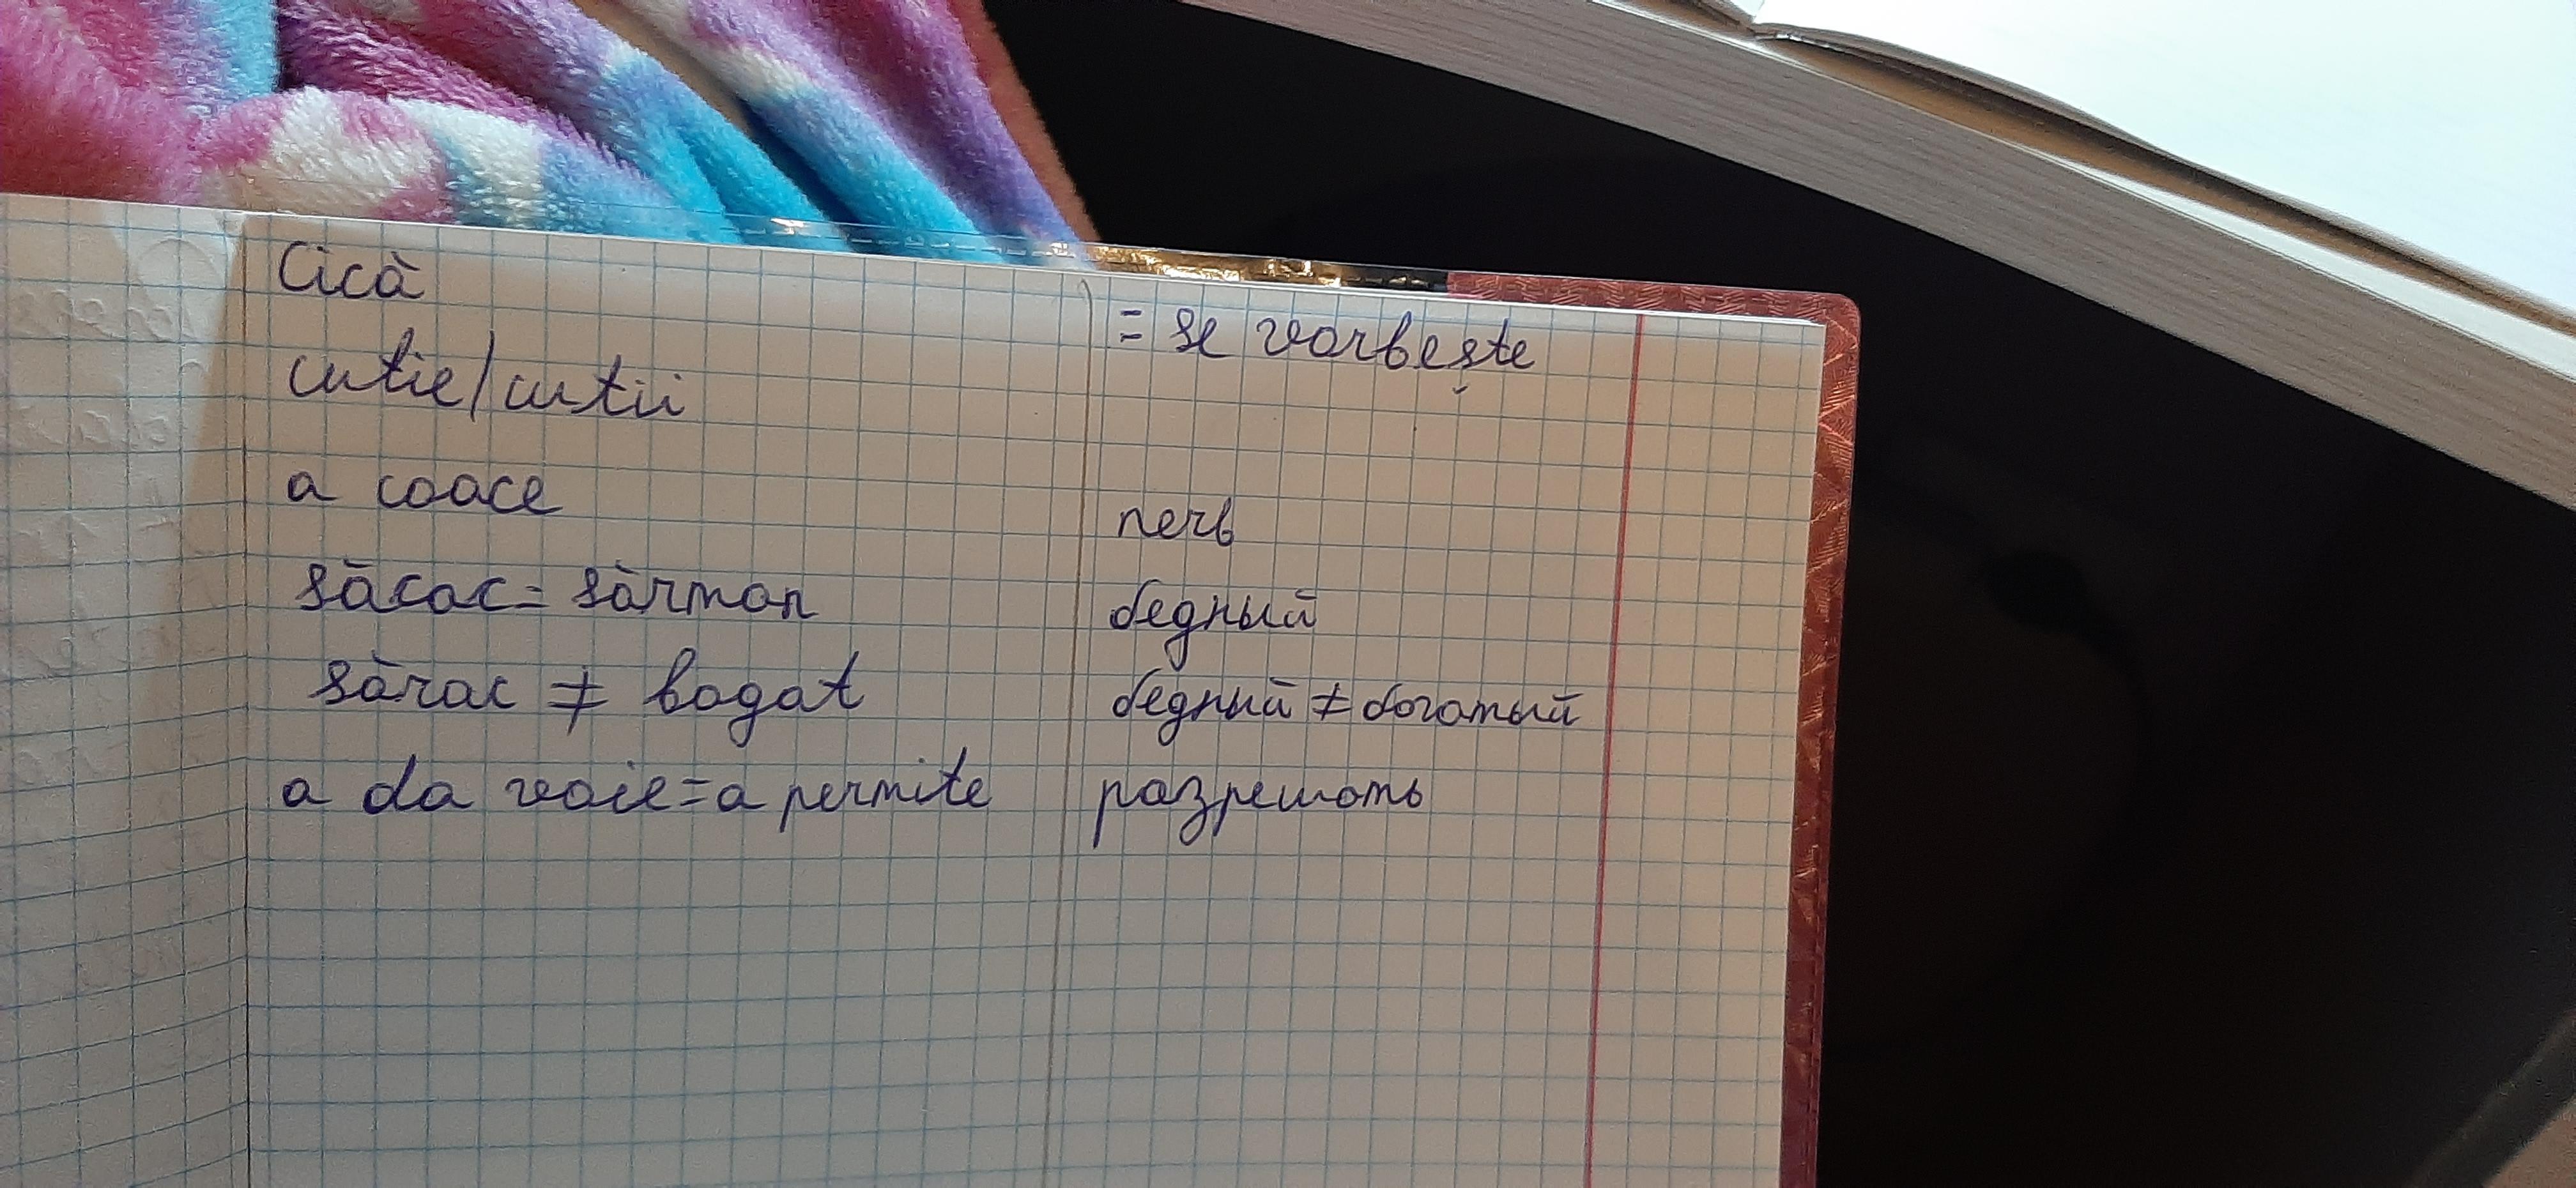 Cică = se vorbește
cutie/cutii
a coace печь
săcac = sărman бедный
sărac ≠ bogat бедный ≠ богатый
a da voie = a permite разрешать